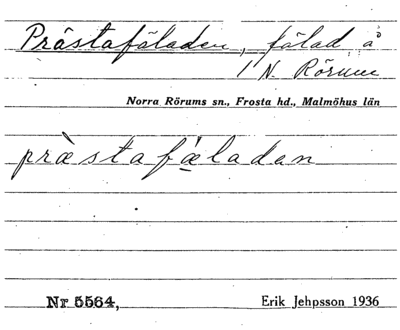 Prästafäladen, fälad å
N. Rörum
Norra Rörums sn., Frosta hd., Malmöhus län
præ̀stafǽ̣ladan
Nr 5564,
Erik Jehpsson 1936